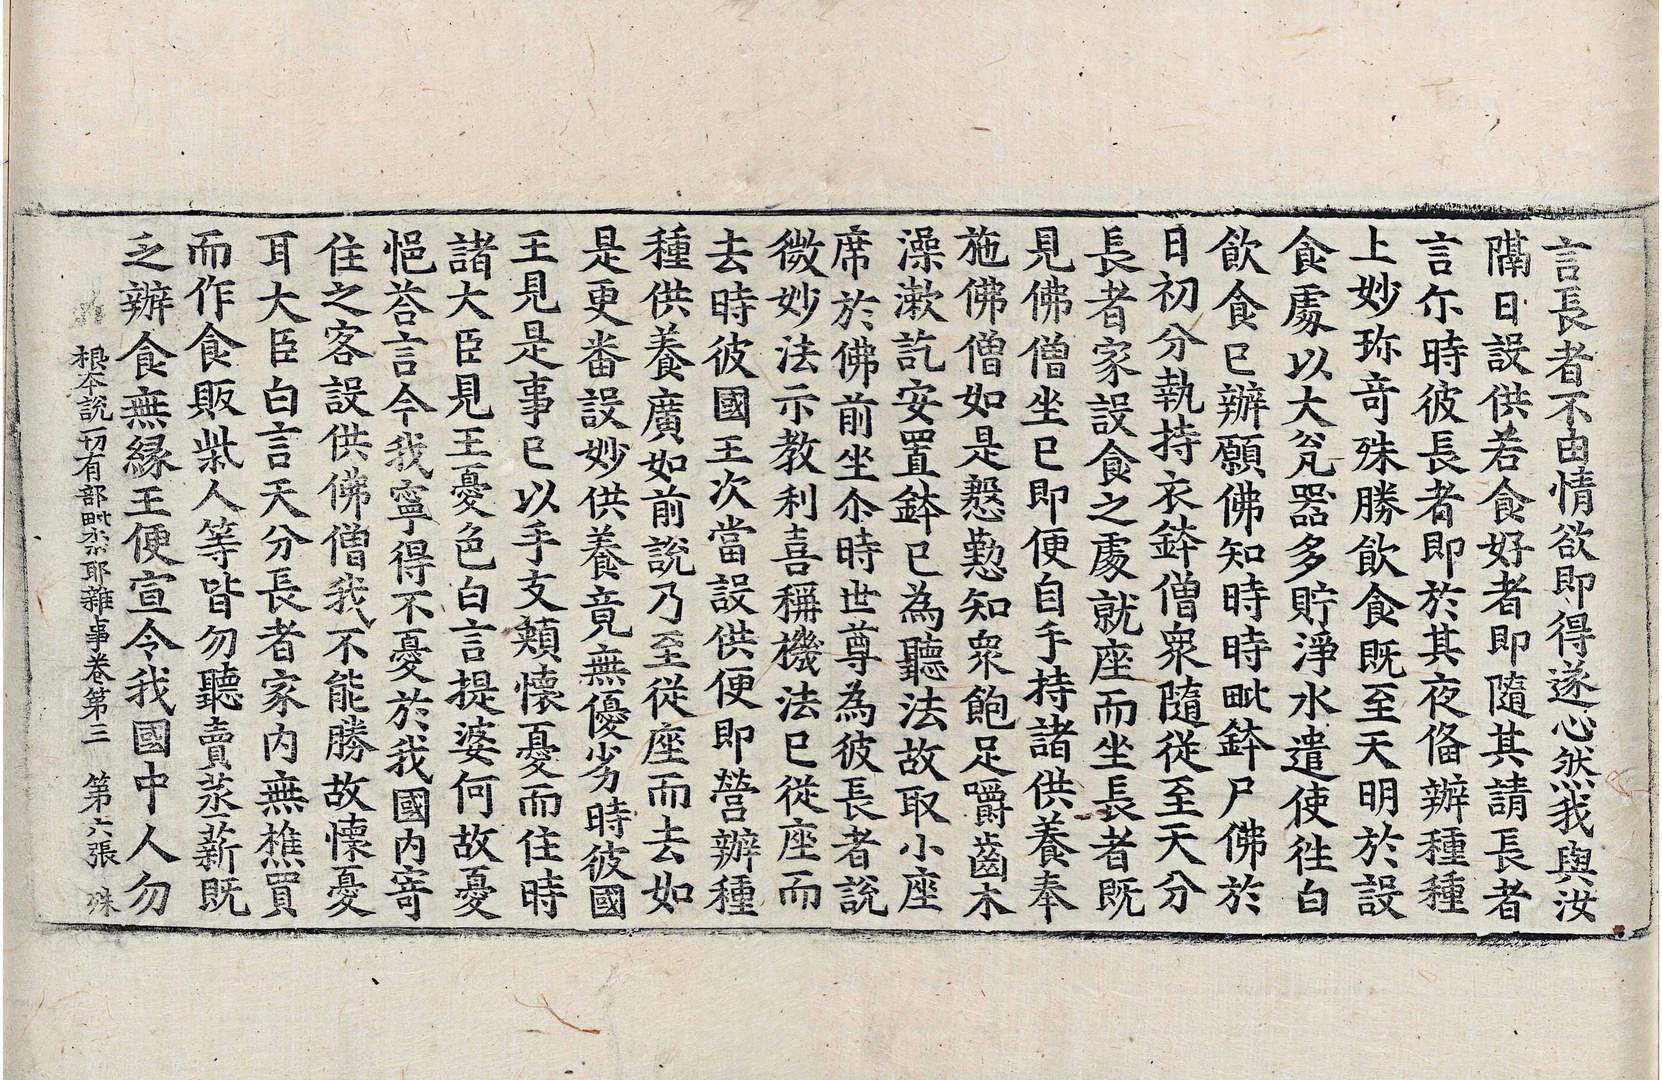 言長者不由情欲即得遂心然我與汝
隔日設供若食好者即隨其請長者
言尒時彼長者即於其夜俻辦種種
上妙珎竒殊勝飲食既至天明於設
食處以大瓮器多貯淨水遣使往白
飲食已辦願佛知時時毗鉢尸佛於
日初分執持衣鉢僧衆隨從至天分
長者家設食之處就座而坐長者既
見佛僧坐已即便自手持諸供養奉
施佛僧如是慇懃知衆飽足嚼齒木
澡漱訖安置鉢已為聽法故取小座
席於佛前坐尒時世尊為彼長者說
微妙法示教利喜稱機法已從座而
去時彼國王次當設供便即營辦種
種供養廣如前說乃至從座而去如
是更番設妙供養竟無優劣時彼國
王見是事已以手支頰懷憂而住時
諸大臣見王憂色白言提婆何故憂
悒荅言今我寧得不憂於我國內寄
住之客設供佛僧我不能勝故懷憂
耳大臣白言天分長者家內無樵買
而作食販柴人等皆勿聽賣蒸薪既
乏辦食無緣王便宣令我國中人勿
根本說一切有部毗柰耶雜事卷第三 第六張 殊